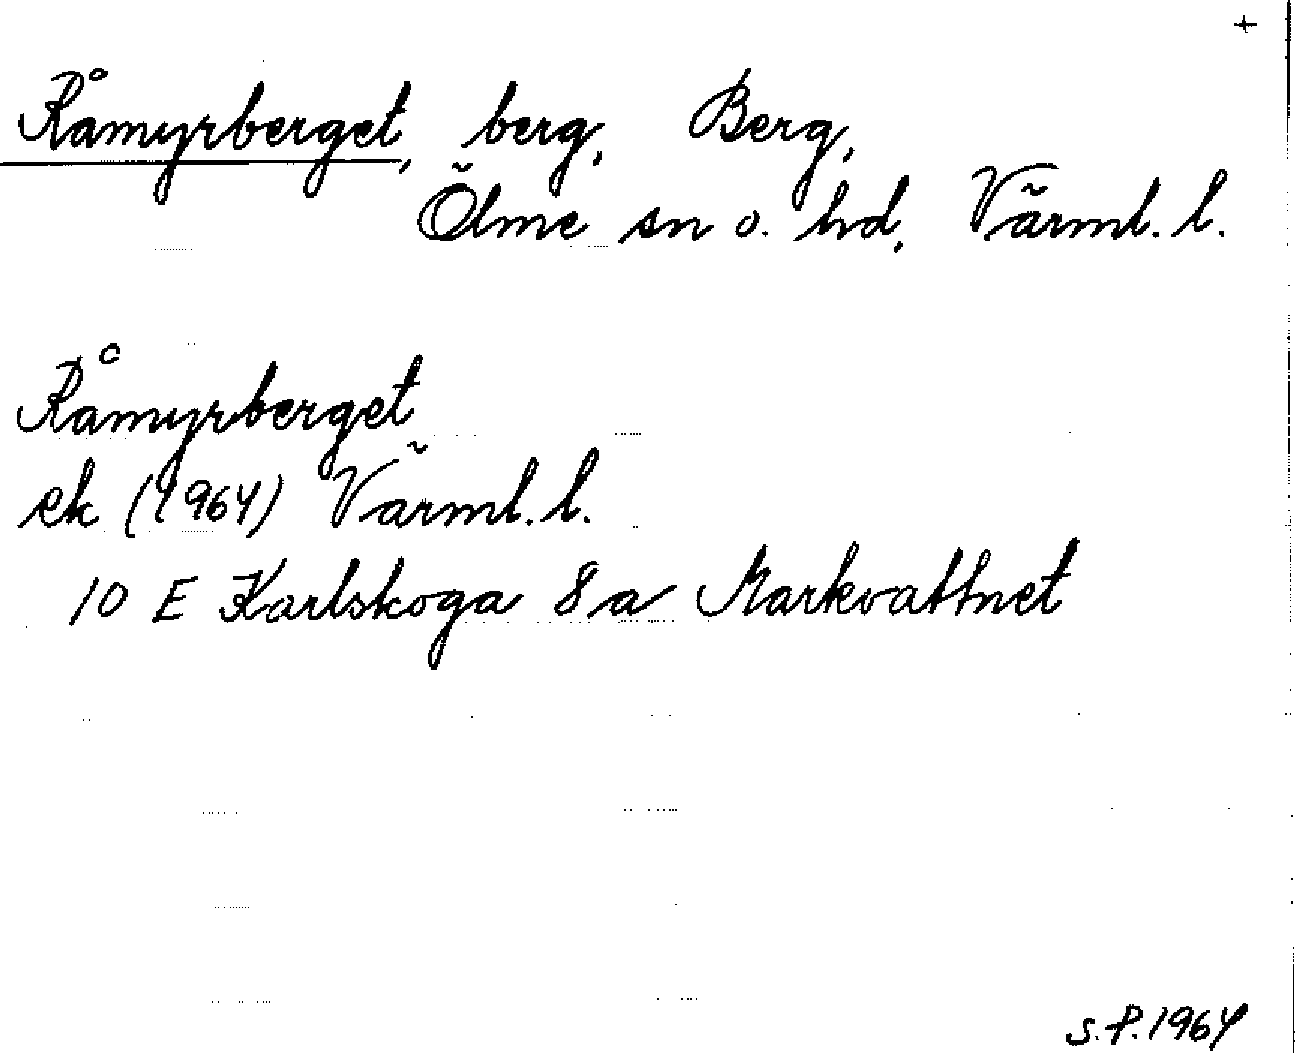 +
Råmyrberget, berg, Berg,
Ölme sn o. hd, Värml. l.
Råmyrberget
ek (1964) Värml. l.
10 E Karlskoga 8 a Markvattnet
S.P. 1964